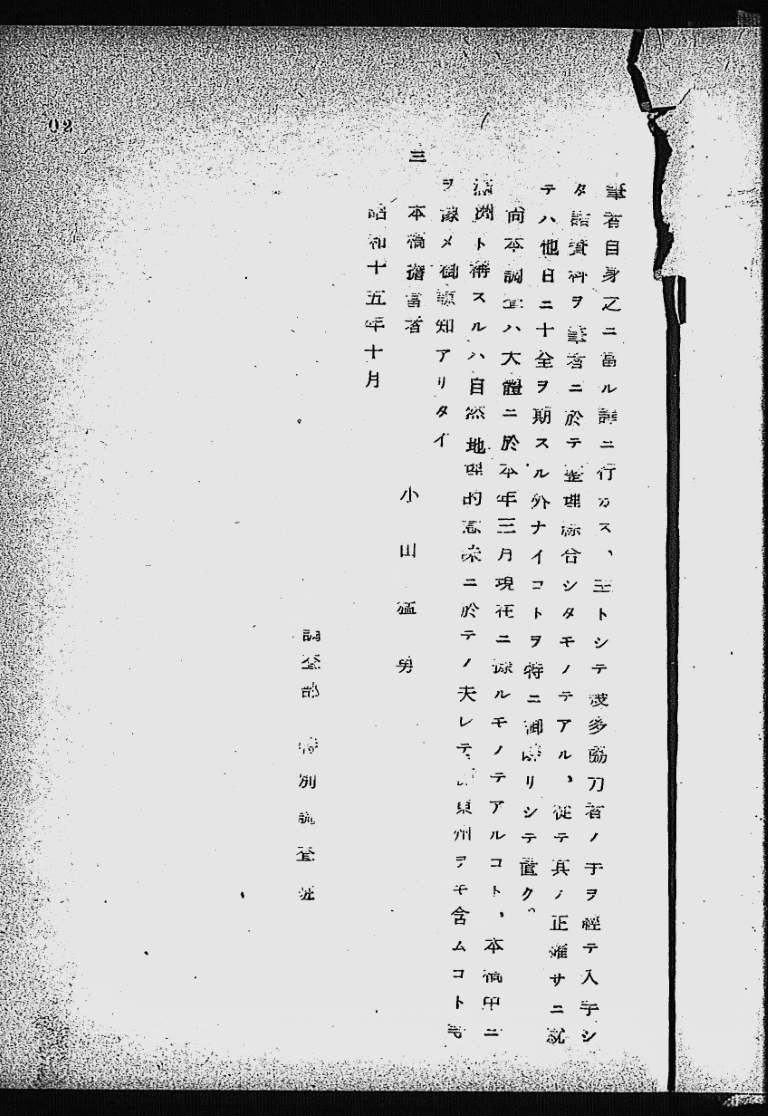 筆者自身之ニ當ル譯ニ行カス、主トシテ幾多協力者ノ手ヲ經テ入手シ
タ諸資料ヲ筆者ニ於テ整理綜合シタモノテアル、從テ其ノ正確サニ就
テハ他日ニ十全ヲ期スル外ナイコトヲ特ニ御斷リシテ置ク。
尚本調査ハ大體ニ於本年三月現在ニ據ルモノテアルコト、本稿中ニ
滿洲ト稱スルハ自然地理的意味ニ於テノ夫レテ關東州ヲモ含ムコト
ヲ豫メ御諒知アリタイ
三 本稿擔當者 小山猛男
昭和十五年十月
調査部 特別調査班
02